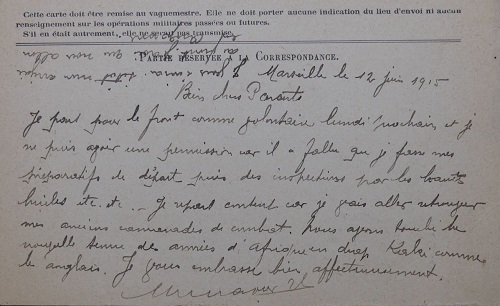 Cette carte doit être remise au vaguemestre. Elle ne doit porter aucune indication du lieu d'envoi ni aucun
renseignement sur les opérations militaires passées ou futures.
S'il en était autrement, elle ne serait pas transmise.
PARTIE RÉSERVÉE A LA CORRESPONDANCE.
Marseille le 12 juin 1915
Bien chers Parents
Je part pour le front comme volontaire lundi prochain et je
ne puis avoir une permission car il a fallu que je fasse mes
préparatifs de départ puis des inspections par les hautes
huiles etc. etc. Je repart content car je vais aller retrouver
mes anciens camarades de combat. Nous avons touché la
nouvelle tenue des armées d'Afrique en drap Kaki comme
le anglais. Je vous embrasse bien affectueusement.